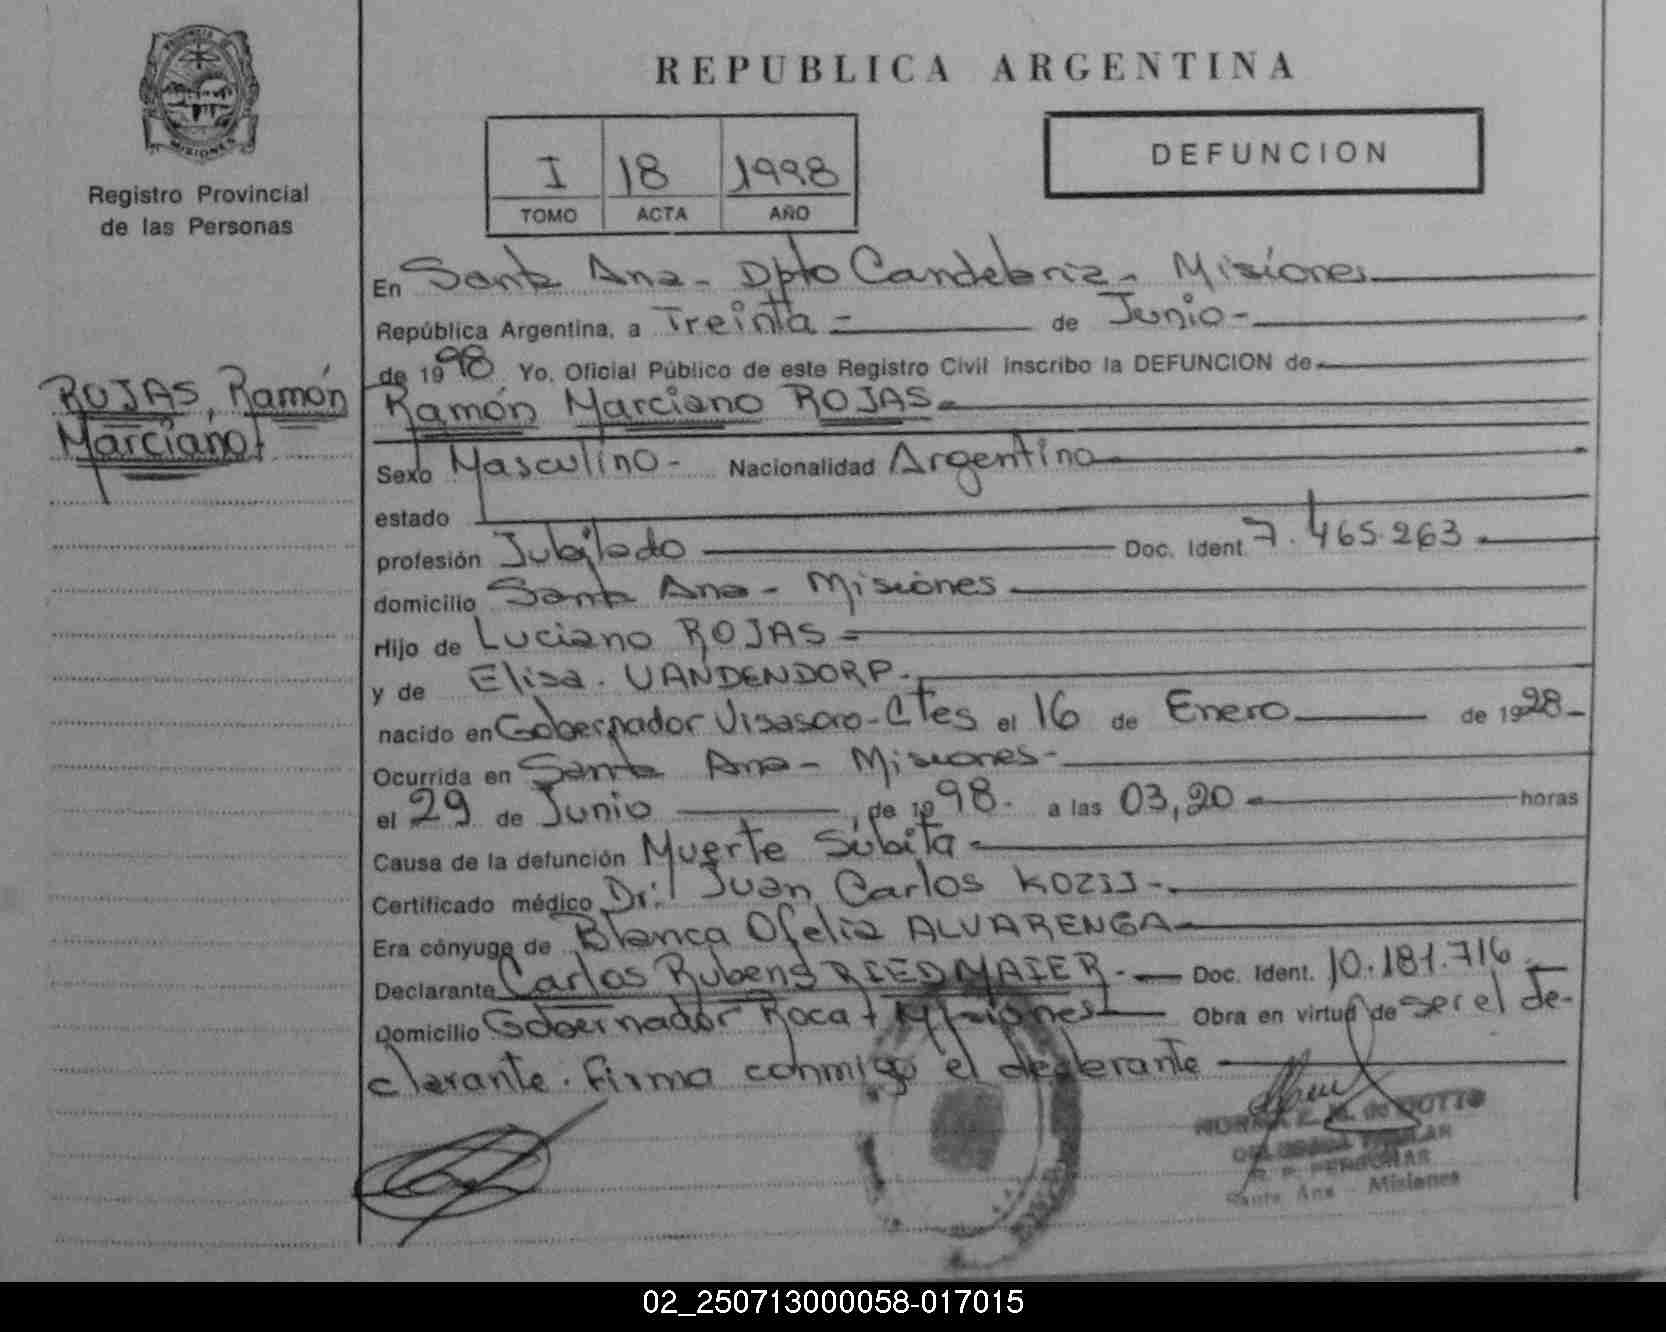 PROVINCIA DE
MISIONES
Registro Provincial
de las Personas
REPUBLICA ARGENTINA
I 18 1998
TOMO ACTA AÑO
DEFUNCION
En Santa Ana - Dpto Candelaria - Misiones
República Argentina, a Treinta - de Junio -
de 1998 Yo, Oficial Público de este Registro Civil inscribo la DEFUNCION de
ROJAS, Ramón
Marciano
Ramón Marciano ROJAS
Sexo Masculino - Nacionalidad Argentina
estado
profesión Jubilado Doc. Ident. 7.465.263
domicilio Santa Ana - Misiones
Hijo de Luciano ROJAS
y de Elisa. VANDENDORP.
nacido en Gobernador Virasoro - Ctes el 16 de Enero de 1928 -
Ocurrida en Santa Ana - Misiones -
el 29 de Junio , de 1998. a las 03,20 horas
Causa de la defunción Muerte Súbita
Certificado médico Dr: Juan Carlos KOZIJ -
Era cónyuge de Blanca Ofelia ALVARENGA
Declarante Carlos Rubens RIEDMAIER - Doc. Ident. 10.181.716
Domicilio Gobernador Roca - Misiones Obra en virtud de ser el de-
clarante. firma conmigo el declarante
NORMA E. M. de
R. P. PERSONAS
Santa Ana - Misiones
02_250713000058-017015